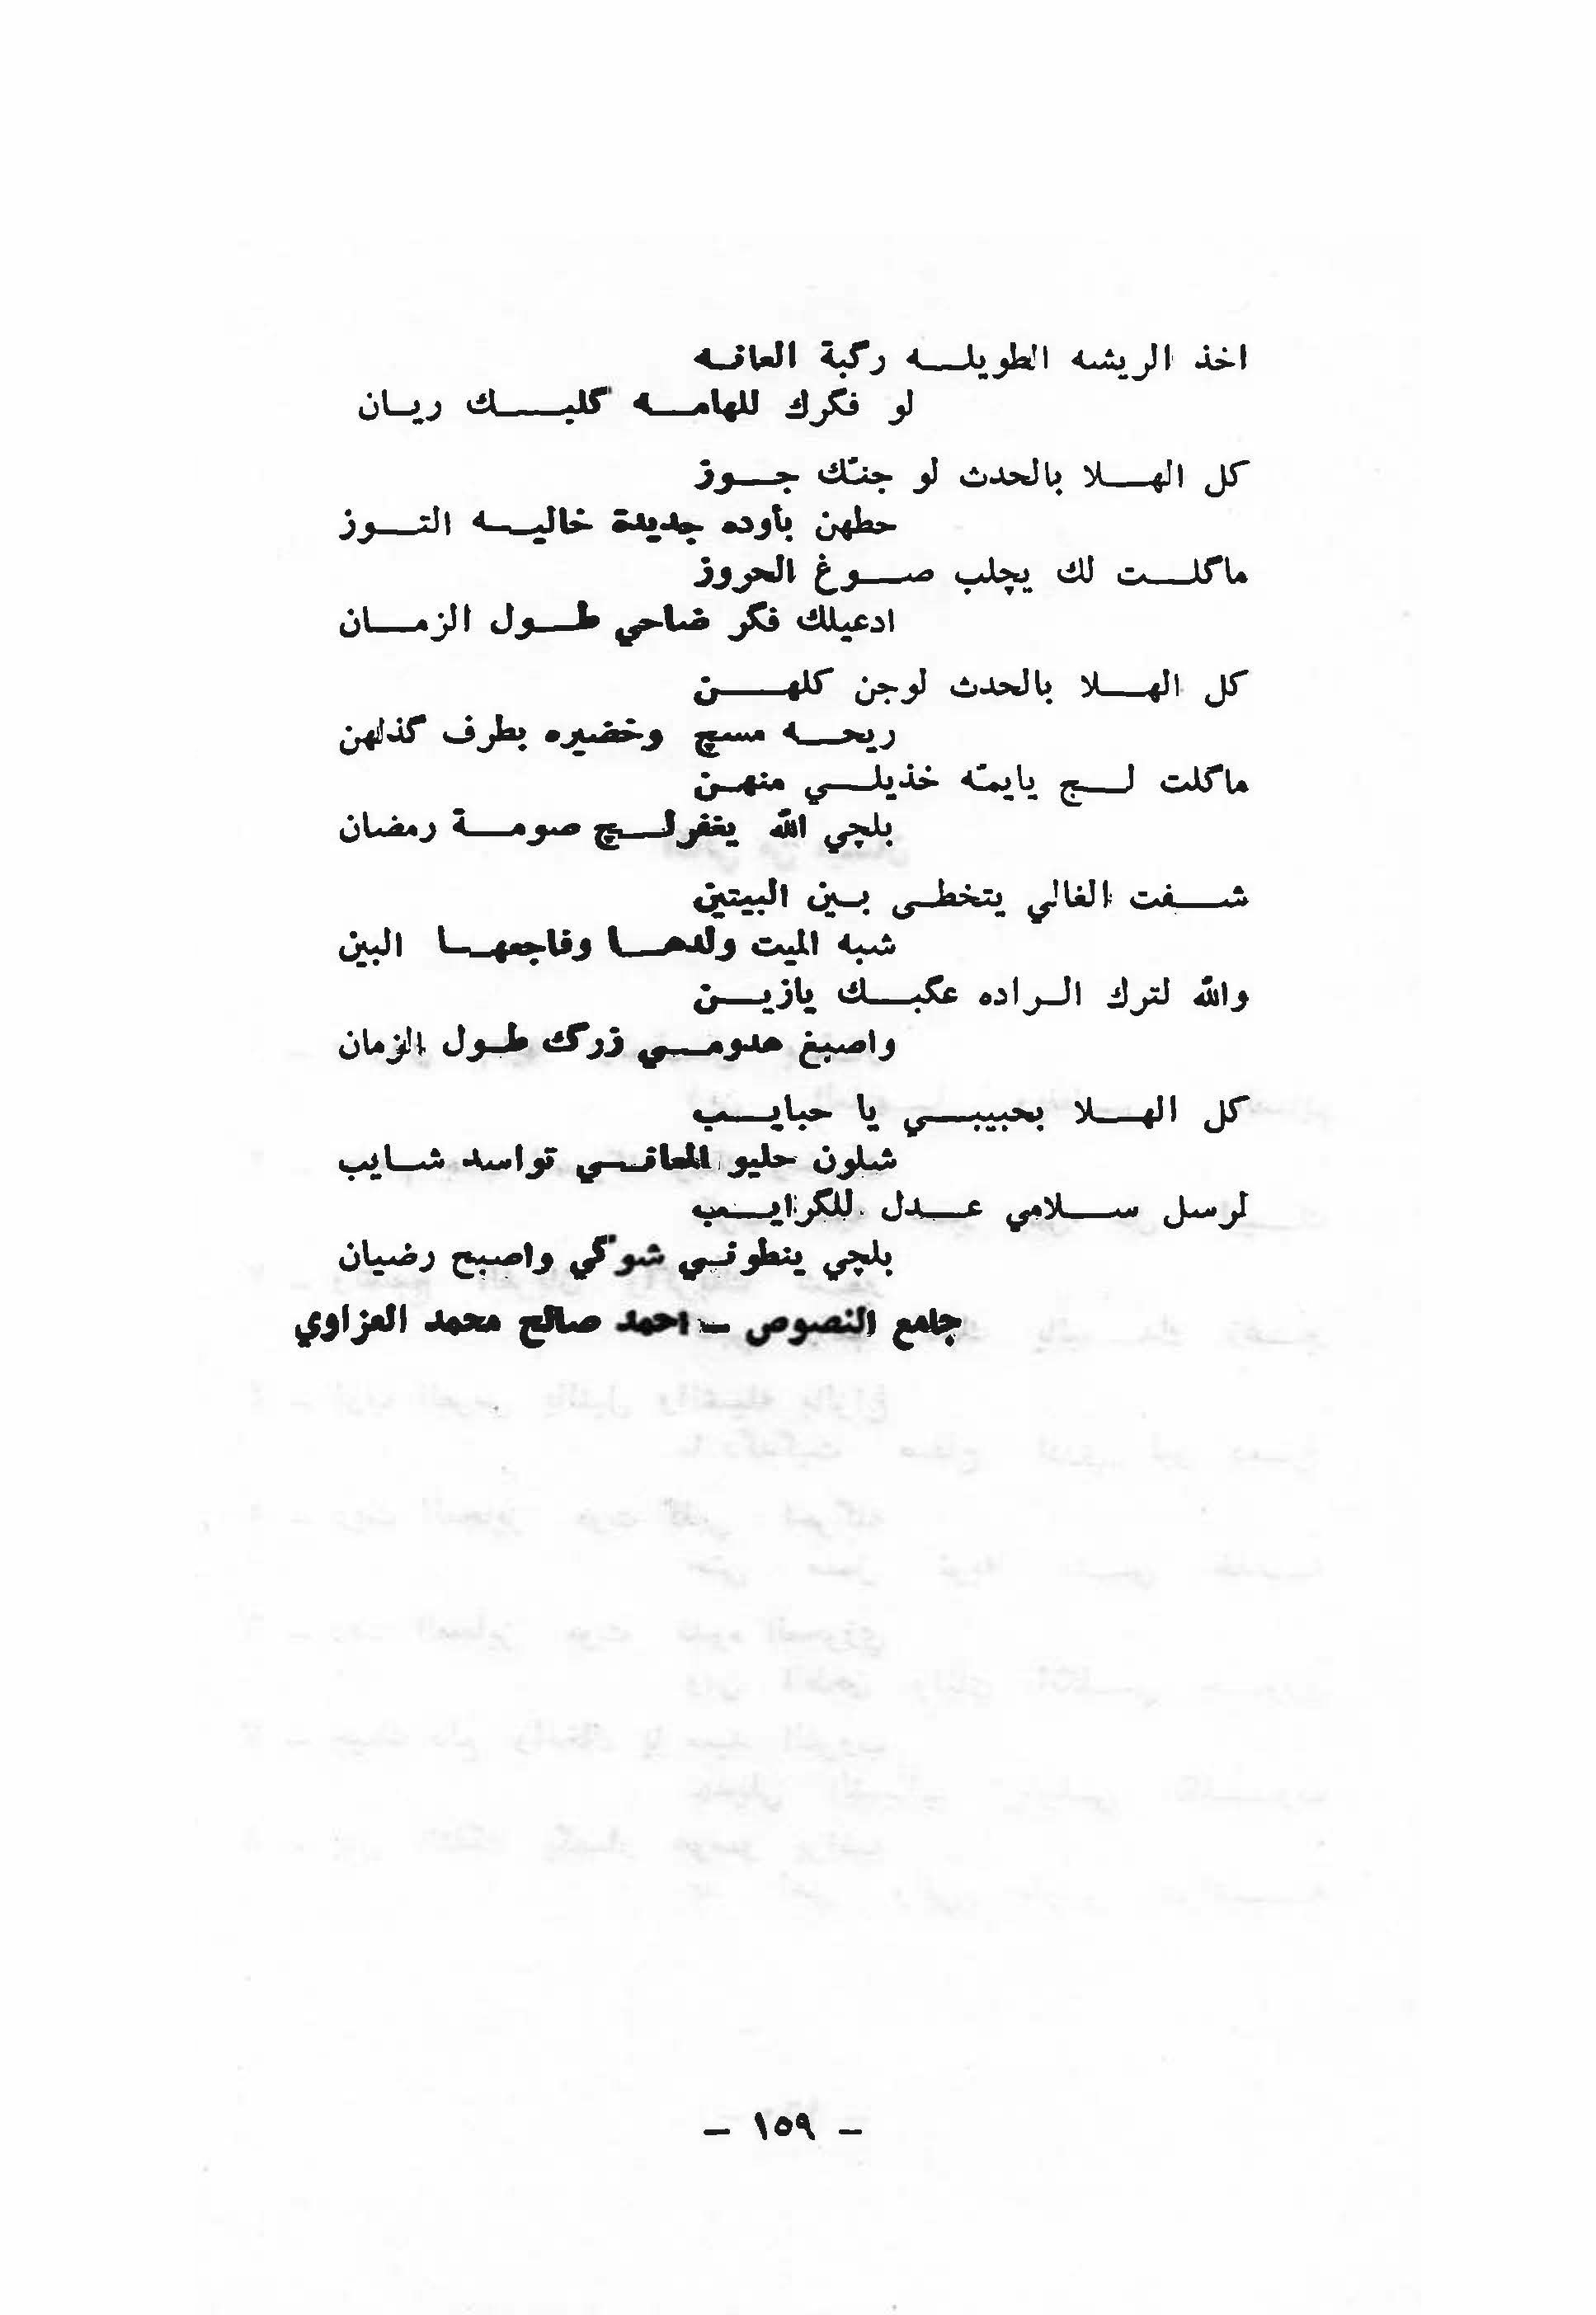 اخذ الريشه الطويلـــه رگبة العانـه
لو فكرك للهامـــه گلبـــك ريـان
كل الهـــلا بالحدث لو جنّك جـــوز
حطهن بأوده جديدة خاليـــه التـــوز
ماگلـــت لك يچلب صـــوغ الحروز
ادعيلك فگر ضاحي طـــول الزمـــان
كل الهـــلا بالحدث لوجن كلهـــن
ريحـــه مسچ وخضيره بطرف گذلهن
ماگلت لـــج يايمّه خذيلـــي منهـن
بلچي الله يغفرلـــچ صومـــة رمضان
شـــفت الغالي يتخطـى بـين البيتين
شبه الميت ولدهـــا وفاجعهـــا البين
والله لترك الـــراده عگبـــك يازيـــن
واصبغ هدومـــي زرگ طـــول الزمان
كل الهـــلا بحبيبـــي يا حبايـــب
شلون حليو المعانـــي تواسد شـــايب
لرسل ســـلامي عـــدل للگرايـــب
بلچي ينطونـــي شوگي واصبح رضيان
جامع النصوص ــ احمد صالح محمد العزاوي
– ١٥٩ –